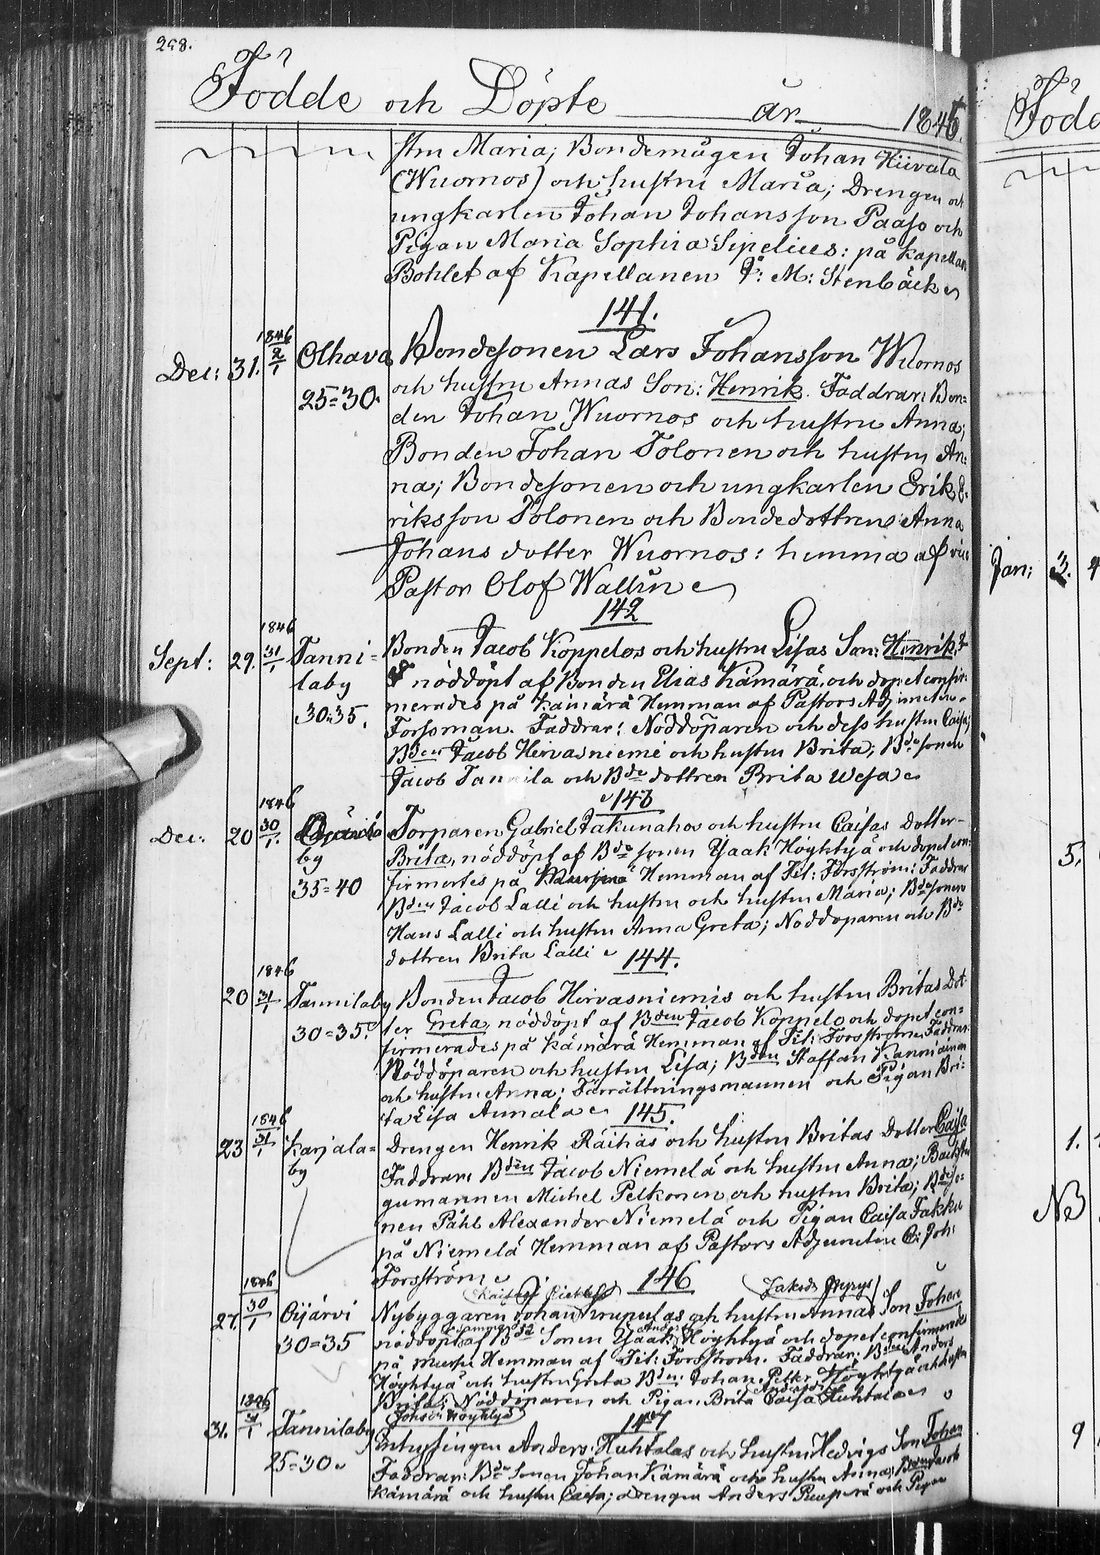 298.
Födde och Döpte år 1845.
stm Maria; Bondemågen Johan Kiivala
(Wuornos) och hustru Maria; Drengen och
ungkarlen Johan Johansson Paaso och
Pigan Maria Sophia Sipelius: på Kapellans
Bohlet af Kapellanen J: M: Stenbäck
141.
Dec: 31. 1846 2/1 Olhava Bondesonen Lars Johansson Wuornos
25=30. och hustru Annas Son: Henrik. Faddrar: Bon=
den Johan Wuornos och hustru Anna;
Bonden Johan Tolonen och hustru An=
na; Bondesonen och ungkarlen Erik E=
riksson Tolonen och Bondedottren Anna
Johans dotter Wuornos: hemma af vice
Pastor Olof Wallin
142
Sept: 29. 1846 31/1 Tanni= Bonden Jacob Koppelos och hustru Lisas Son: Henrik,
laby nöddöpt af Bonden Elias Kämärä, och dopet confir=
30=35. merades på Kämärä Hemman af Pastors Adjuncten
Forssman. Faddrar: Nöddöparen och dess hustru Caisa;
Bden Jacob Hervasniemi och hustru Brita; Bdesonen
Jacob Tannila och Bde dottren Brita Wesa
143
Dec: 20 1846 30/1. Torparen Gabriel Jakunahos och hustru Caisas Dotter
by Brita, nöddöpt af Bde sonen Isaak Höyhtyä och dopet con=
35=40 firmertes på Hemman af Tit: Forsström: Faddrar
Bden Jacob Lalli och hustru och hustru Maria; Bdesonen
Hans Lalli och hustru Anna Greta; Nöddöparen och Bde
dottren Brita Lalli
144.
20 1846 31/1 Tannilaby Bonden Jacob Hervasniemis och hustru Britas Dot=
30=35. ter Greta, nöddöpt af Bden Jacob Koppelo och dopet con=
firmerades på Kämärä Hemman af Tit: Forsström. Faddrar:
Nöddöparen och hustru Lisa; Bden Staffan
och hustru Anna; Förrättningsmannen och Pigan Bri=
ta Lisa Annala
145.
23 1846 31/1 Karjala= Drengen Henrik Räihäs och hustru Britas Dotter Caisa
by Faddrar: Bden Jacob Niemelä och hustru Anna; Backstu
gumannen Michel Pelkonen och hustru Brita; Bdeso=
nen Påhl Alexander Niemelä och Pigan Caisa Jakku
på Niemelä Hemman af Pastors Adjuncten C: Joh:
Forsström
146
27. 1846 30/1 Oijärvi Nybyggaren Johan Krupulas och hustru Annas Son Johan
30=35 nöddöpt af Bde Sonen Isaak Höyhtyä och dopet confirmerades
på Hemman af Tit: Forsström. Faddrar: Bden Anders
Höyhtyä och hustru Greta Bden: Johan Höyhtyä och hustru
Brita; Nöddöparen och Pigan Brita Caisa Huhtala
147
31. 1846 31/1 Tannilaby Inhysingen Anders Huhtalas och hustru Hedvigs Son Johan
25=30. Faddrar: Bde Sonen Johan Kämärä och hustru Anna; Bonden Jacob
Kämärä och hustru Caisa; drengen Anders och Pigan
Jan: 3.
5.
1.
NB
9